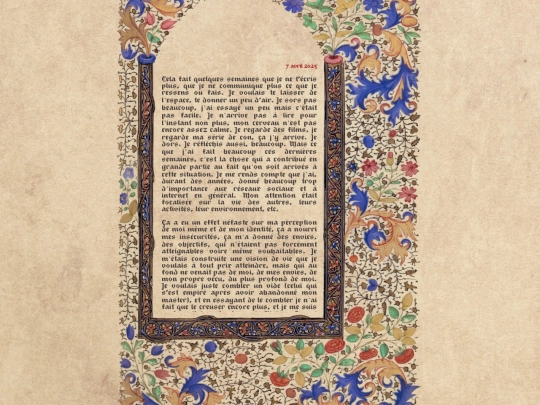 7 avril 2025
Cela fait quelques semaines que je ne t'écris
plus, que je ne communique plus ce que je
ressens ou fais. Je voulais te laisser de
l'espace, te donner un peu d'air. Je sors pas
beaucoup, j'ai essayé un peu mais c'était
pas facile. Je n'arrive pas à lire pour
l'instant non plus, mon cerveau n'est pas
encore assez calme. Je regarde des films, je
regarde ma série de con, ça j'y arrive. Je
dors. Je réfléchis aussi, beaucoup. Mais ce
que j'ai fait beaucoup ces dernières
semaines, c'est la chose qui a contribué en
grande partie au fait qu'on soit arrivés à
cette situation. Je me rends compte que j'ai,
durant des années, donné beaucoup trop
d'importance aux réseaux sociaux et à
internet en général. Mon attention était
focalisée sur la vie des autres, leurs
activités, leur environnement, etc.
Ça a eu un effet néfaste sur ma perception
de moi même et de mon identité, ça a nourri
mes insécurités, ça m'a donné des envies,
des objectifs, qui n'étaient pas forcément
atteignables voire même souhaitables. Je
m'étais construite une vision de vie que je
voulais à tout prix atteindre, mais qui au
fond ne venait pas de moi, de mes envies, de
mon propre vécu, du plus profond de moi.
Je voulais juste combler un vide (celui qui
s'est empiré après avoir abandonné mon
master), et en essayant de le combler je n'ai
fait que le creuser encore plus, et je me suis